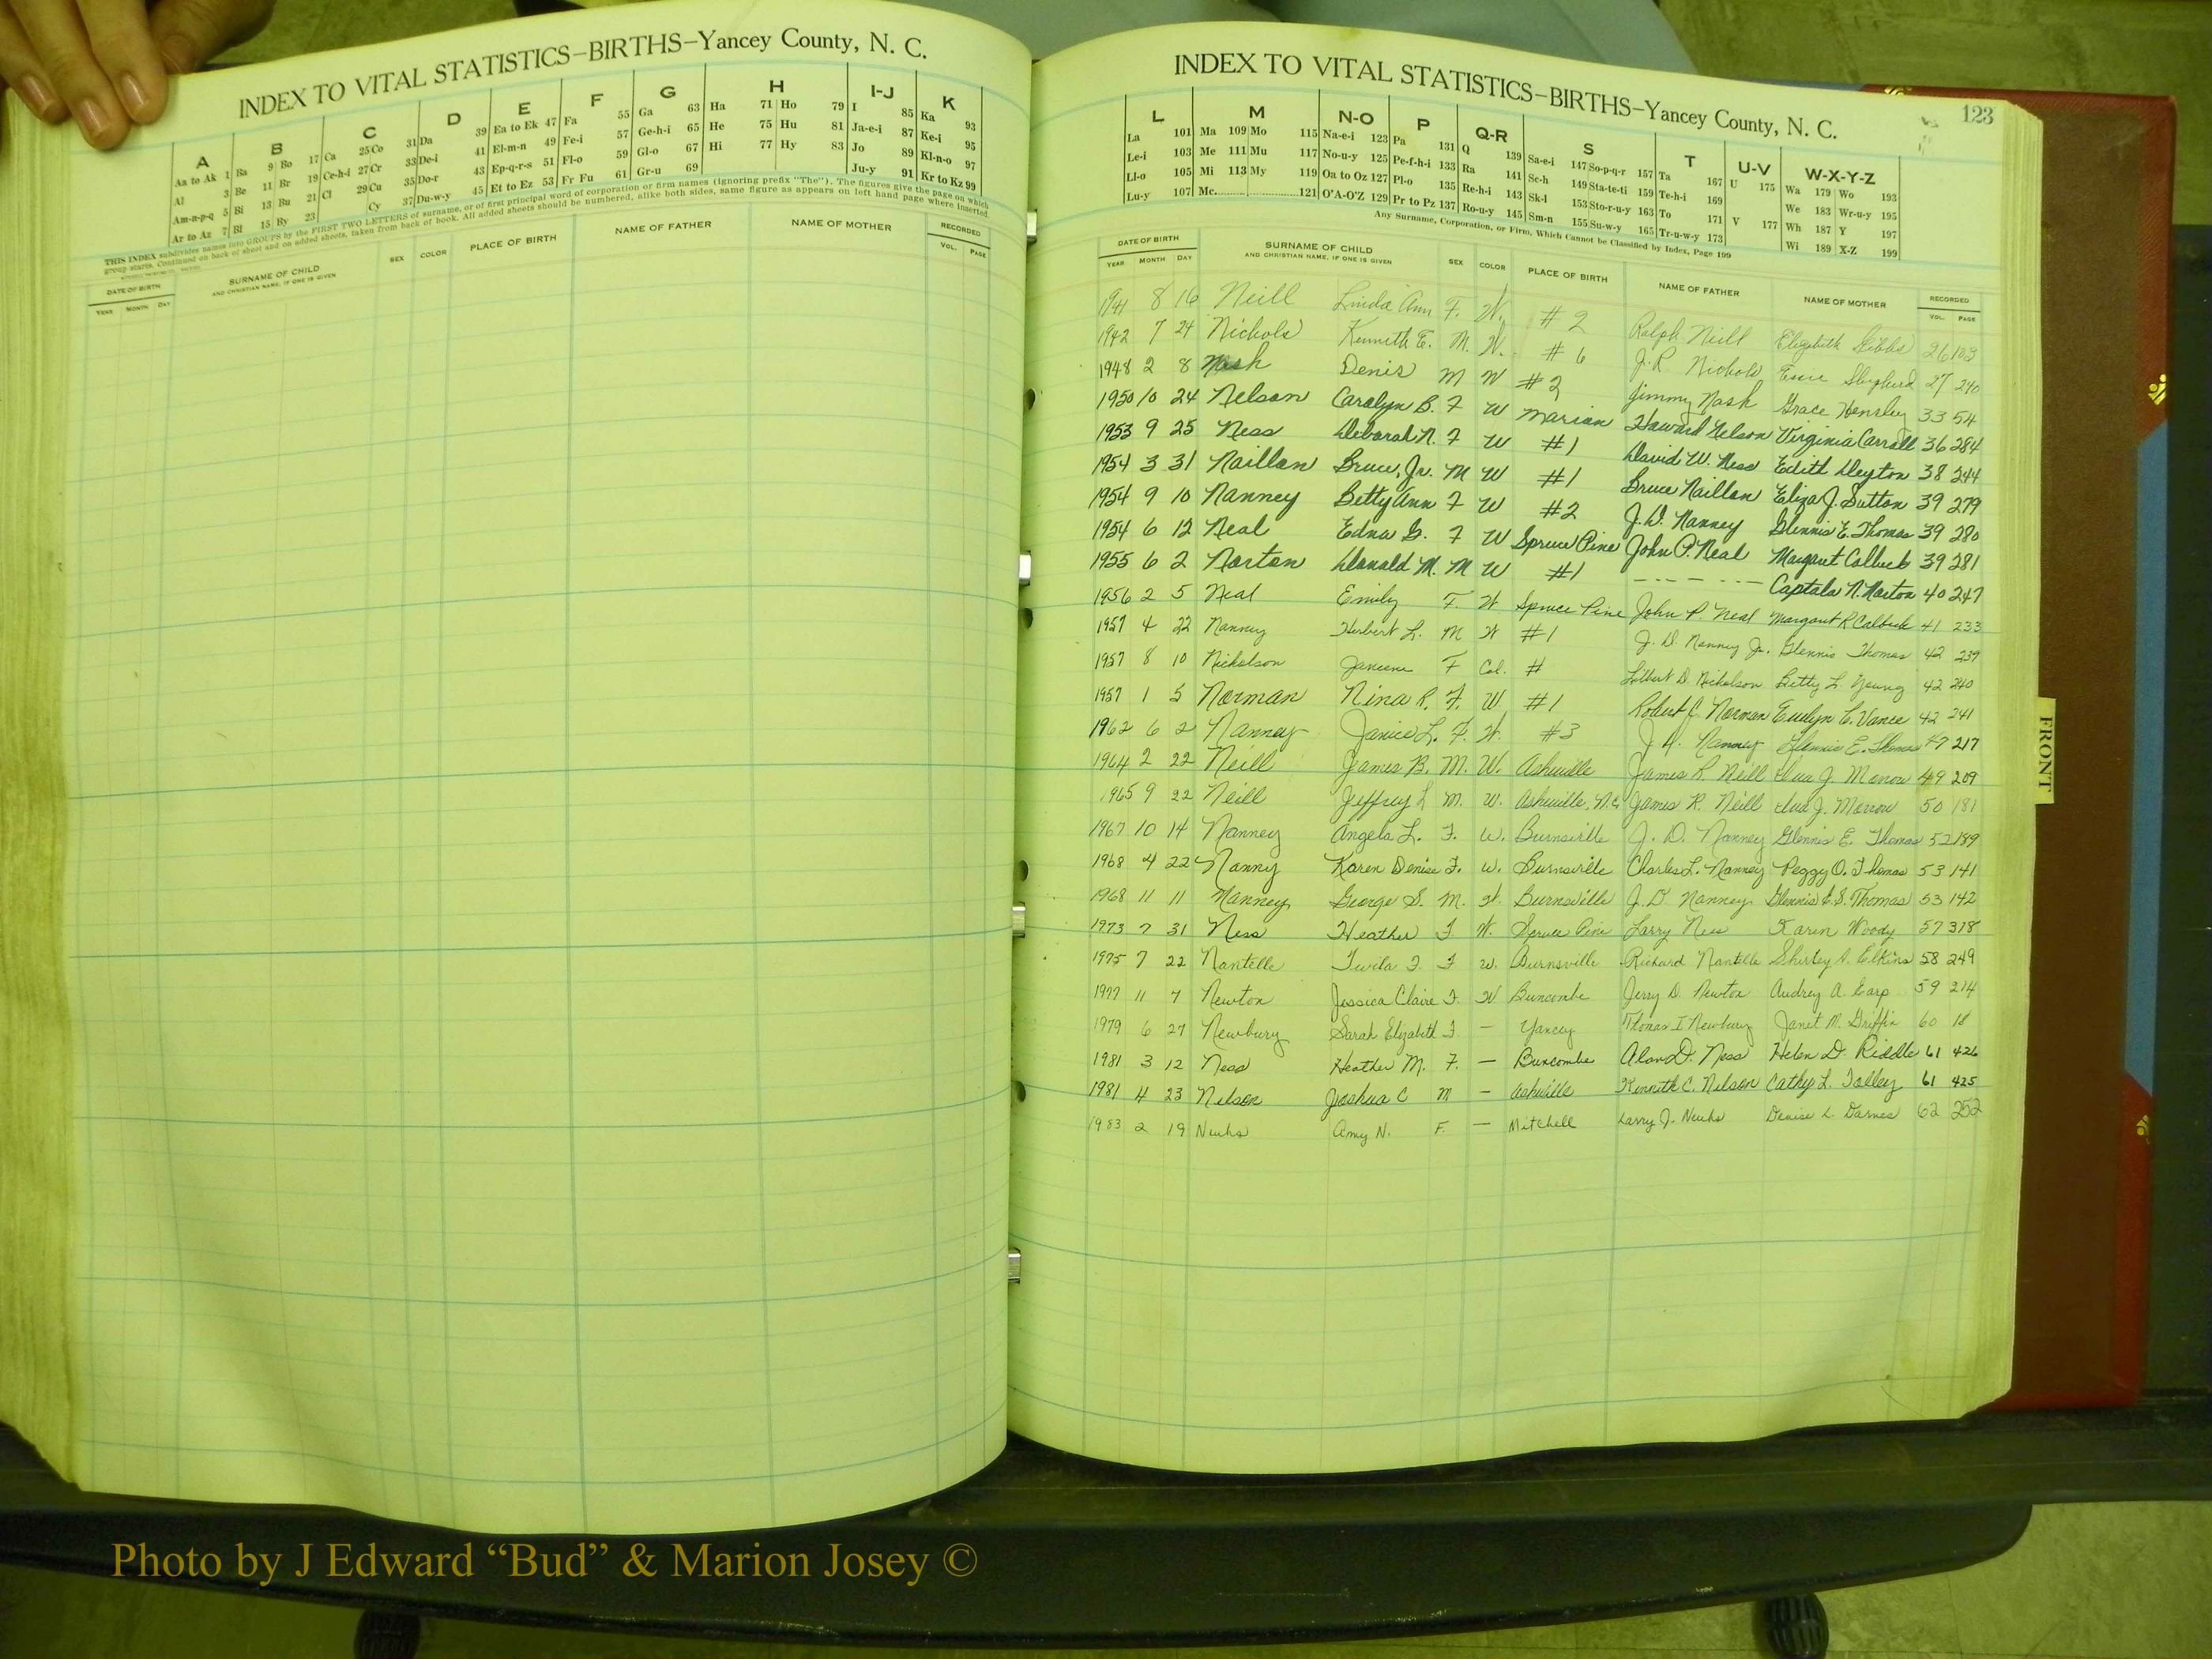 INDEX TO VITAL STATISTICS—BIRTHS—Yancey County, N. C.
A B C D E F G H I-J K
Aa to Ak 1 Ba 9 Bo 17 Ca 25 Co 31 Da 39 Ea to Ek 47 Fa 55 Ga 63 Ha 71 Ho 79 I 85 Ka 93
Al 3 Be 11 Br 19 Ce-h-i 27 Cr 33 De-i 41 El-m-n 49 Fe-i 57 Ge-h-i 65 He 75 Hu 81 Ja-e-i 87 Ke-i 95
Am-n-p-q 5 Bi 13 Bu 21 Cl 29 Cu 35 Do-r 43 Ep-q-r-s 51 Fl-o 59 Gl-o 67 Hi 77 Hy 83 Jo 89 Kl-n-o 97
Ar to Az 7 Bl 15 By 23 Cy 37 Du-w-y 45 Et to Ez 53 Fr Fu 61 Gr-u 69 Ju-y 91 Kr to Kz 99
THIS INDEX subdivides names into GROUPS by the FIRST TWO LETTERS of surname, or of first principal word of corporation or firm names (ignoring prefix "The"). The figures give the page on which
group starts. Continued on back of sheet and on added sheets, taken from back of book. All added sheets should be numbered, alike both sides, same figure as appears on left hand page where inserted.
DATE OF BIRTH SURNAME OF CHILD SEX COLOR PLACE OF BIRTH NAME OF FATHER NAME OF MOTHER RECORDED
YEAR MONTH DAY AND CHRISTIAN NAME, IF ONE IS GIVEN VOL. PAGE
123
INDEX TO VITAL STATISTICS—BIRTHS—Yancey County, N. C.
L M N-O P Q-R S T U-V W-X-Y-Z
La 101 Ma 109 Mo 115 Na-e-i 123 Pa 131 Q 139 Sa-e-i 147 So-p-q-r 157 Ta 167 U 175 Wa 179 Wo 193
Le-i 103 Me 111 Mu 117 No-u-y 125 Pe-f-h-i 133 Ra 141 Sc-h 149 Sta-te-ti 159 Te-h-i 169 We 183 Wr-u-y 195
Ll-o 105 Mi 113 My 119 Oa to Oz 127 Pl-o 135 Re-h-i 143 Sk-l 153 Sto-r-u-y 163 To 171 V 177 Wh 187 Y 197
Lu-y 107 Mc 121 O'A-O'Z 129 Pr to Pz 137 Ro-u-y 145 Sm-n 155 Su-w-y 165 Tr-u-w-y 173 Wi 189 X-Z 199
Any Surname, Corporation, or Firm, Which Cannot be Classified by Index, Page 199
DATE OF BIRTH SURNAME OF CHILD SEX COLOR PLACE OF BIRTH NAME OF FATHER NAME OF MOTHER RECORDED
YEAR MONTH DAY AND CHRISTIAN NAME, IF ONE IS GIVEN VOL. PAGE
1941 8 16 Neill Linda Ann F. W. #2 Ralph Neill Elizabeth Gibbs 26 103
1942 7 24 Nichols Kenneth E. M. W. #6 J. R. Nichols Essie Shepherd 27 240
1948 2 8 Nash Denis M W #2 Jimmy Nash Grace Hensley 33 54
1950 10 24 Nelson Carolyn B. F W Marion Howard Nelson Virginia Carroll 36 284
1953 9 25 Ness Deborah N. F W #1 David W. Ness Edith Deyton 38 244
1954 3 31 Naillon Bruce, Jr. M W #1 Bruce Naillon Eliza J. Sutton 39 279
1954 9 10 Nanney Betty Ann F W #2 J. D. Nanney Glennis E. Thomas 39 280
1954 6 12 Neal Edna G. F W Spruce Pine John P. Neal Margaret 39 281
1955 6 2 Norton Donald M. M W #1 - - - - Captala N. Norton 40 247
1956 2 5 Neal Emily F. W Spruce Pine John P. Neal Margaret R. 41 233
1957 4 22 Nanney Herbert L. M W #1 J. D. Nanney Jr. Glennis Thomas 42 239
1957 8 10 Nicholson Janeene F Col. # D. Nicholson Betty L. Young 42 240
1957 1 5 Norman Nina R. F. W. #1 Robert J. Norman Evelyn C. Vance 42 241
1962 6 2 Nanney Janice L. F. W. #3 J. D. Nanney Glennis E. Thomas 47 217
1964 2 22 Neill James B. M. W. Asheville James R. Neill Iva J. Morrow 49 209
1965 9 22 Neill Jeffrey L M. W. Asheville, N.C. James R. Neill Iva J. Morrow 50 181
1967 10 14 Nanney Angela L. F. W. Burnsville J. D. Nanney Glennis E. Thomas 52 189
1968 4 22 Nanny Karen Denise F. W. Burnsville Charles L. Nanney Peggy O. Thomas 53 141
1968 11 11 Nanney George S. M. W. Burnsville J. D. Nanney Glennis E. S. Thomas 53 142
1973 7 31 Ness Heather F W. Spruce Pine Larry Ness Karen Woody 57 318
1975 7 22 Nantelle Twila F. F W. Burnsville Richard Nantelle Shirley A. Elkins 58 249
1977 11 7 Newton Jessica Claire F. W Buncombe Jerry D. Newton Audrey A. Earp 59 214
1979 6 27 Newbury Sarah Elizabeth F — Yancey Thomas I Newbury Janet M. Griffin 60 18
1981 3 12 Ness Heather M. F. — Buncombe Alan D. Ness Helen D. Riddle 61 426
1981 4 23 Nelson Joshua C M — Asheville Kenneth C. Nelson Cathy L. Talley 61 425
1983 2 19 Neuhs Amy N. F. — Mitchell Larry J. Neuhs Denise L. Barnes 62 252
FRONT
Photo by J Edward “Bud” & Marion Josey ©